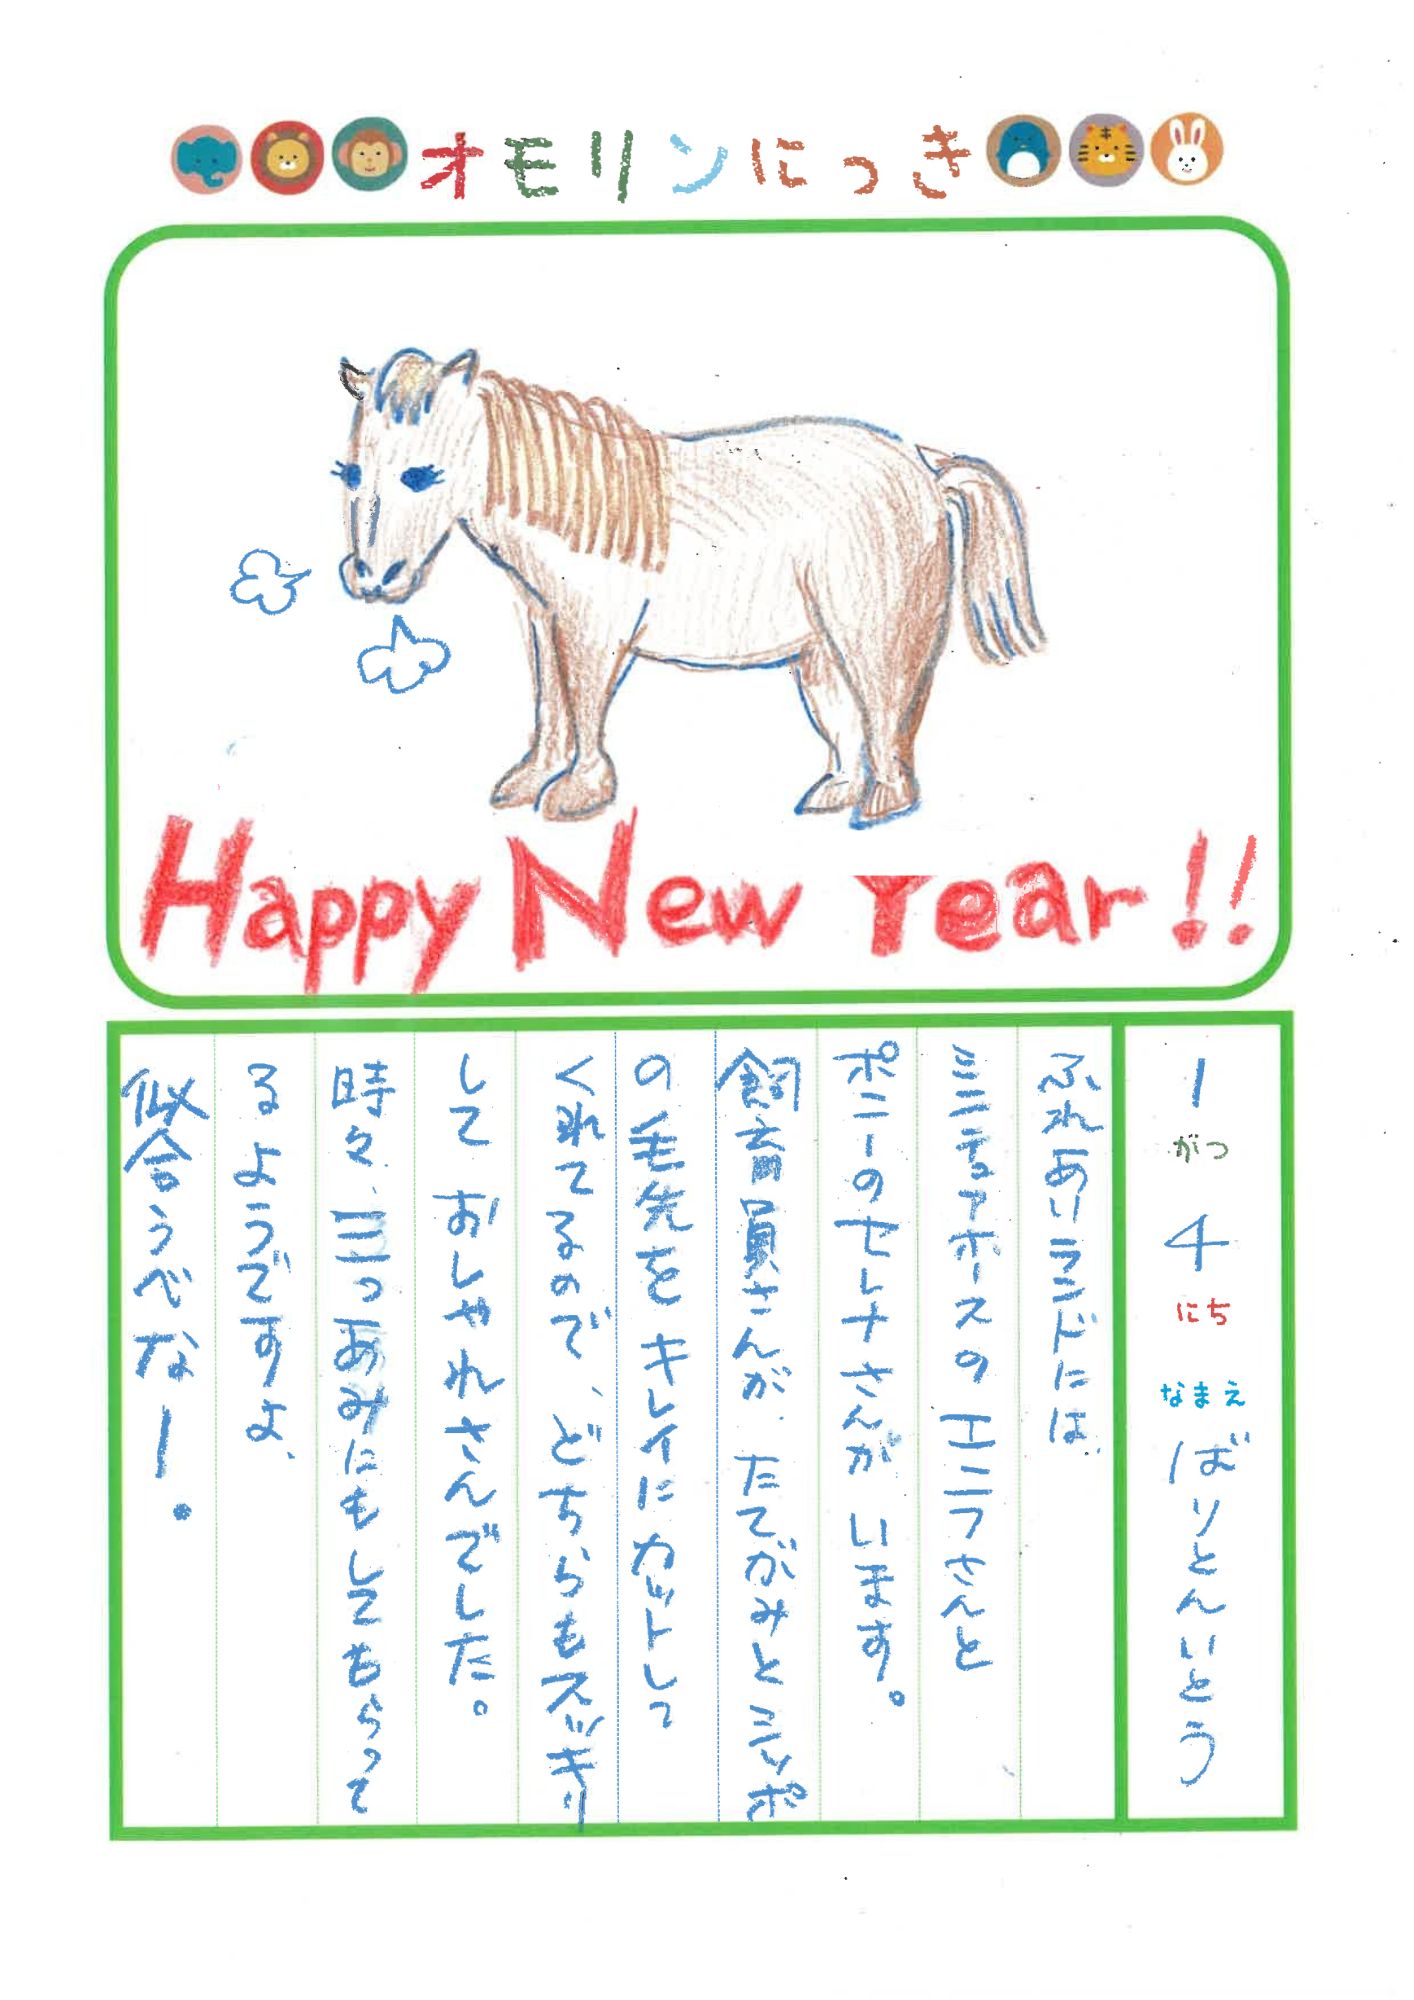 オモリンにっき
Happy New Year!!
1がつ4にち なまえ ばりとんいとう
ふれあいランドには、
ミニチュアホースのエニフさんと
ポニーのセレナさんがいます。
飼育員さんが、たてがみとシッポ
の毛先をキレイにカットして
くれてるので、どちらもスッキリ
しておしゃれさんでした。
時々、三つあみにもしてもらって
るようですよ、
似合うべなー。